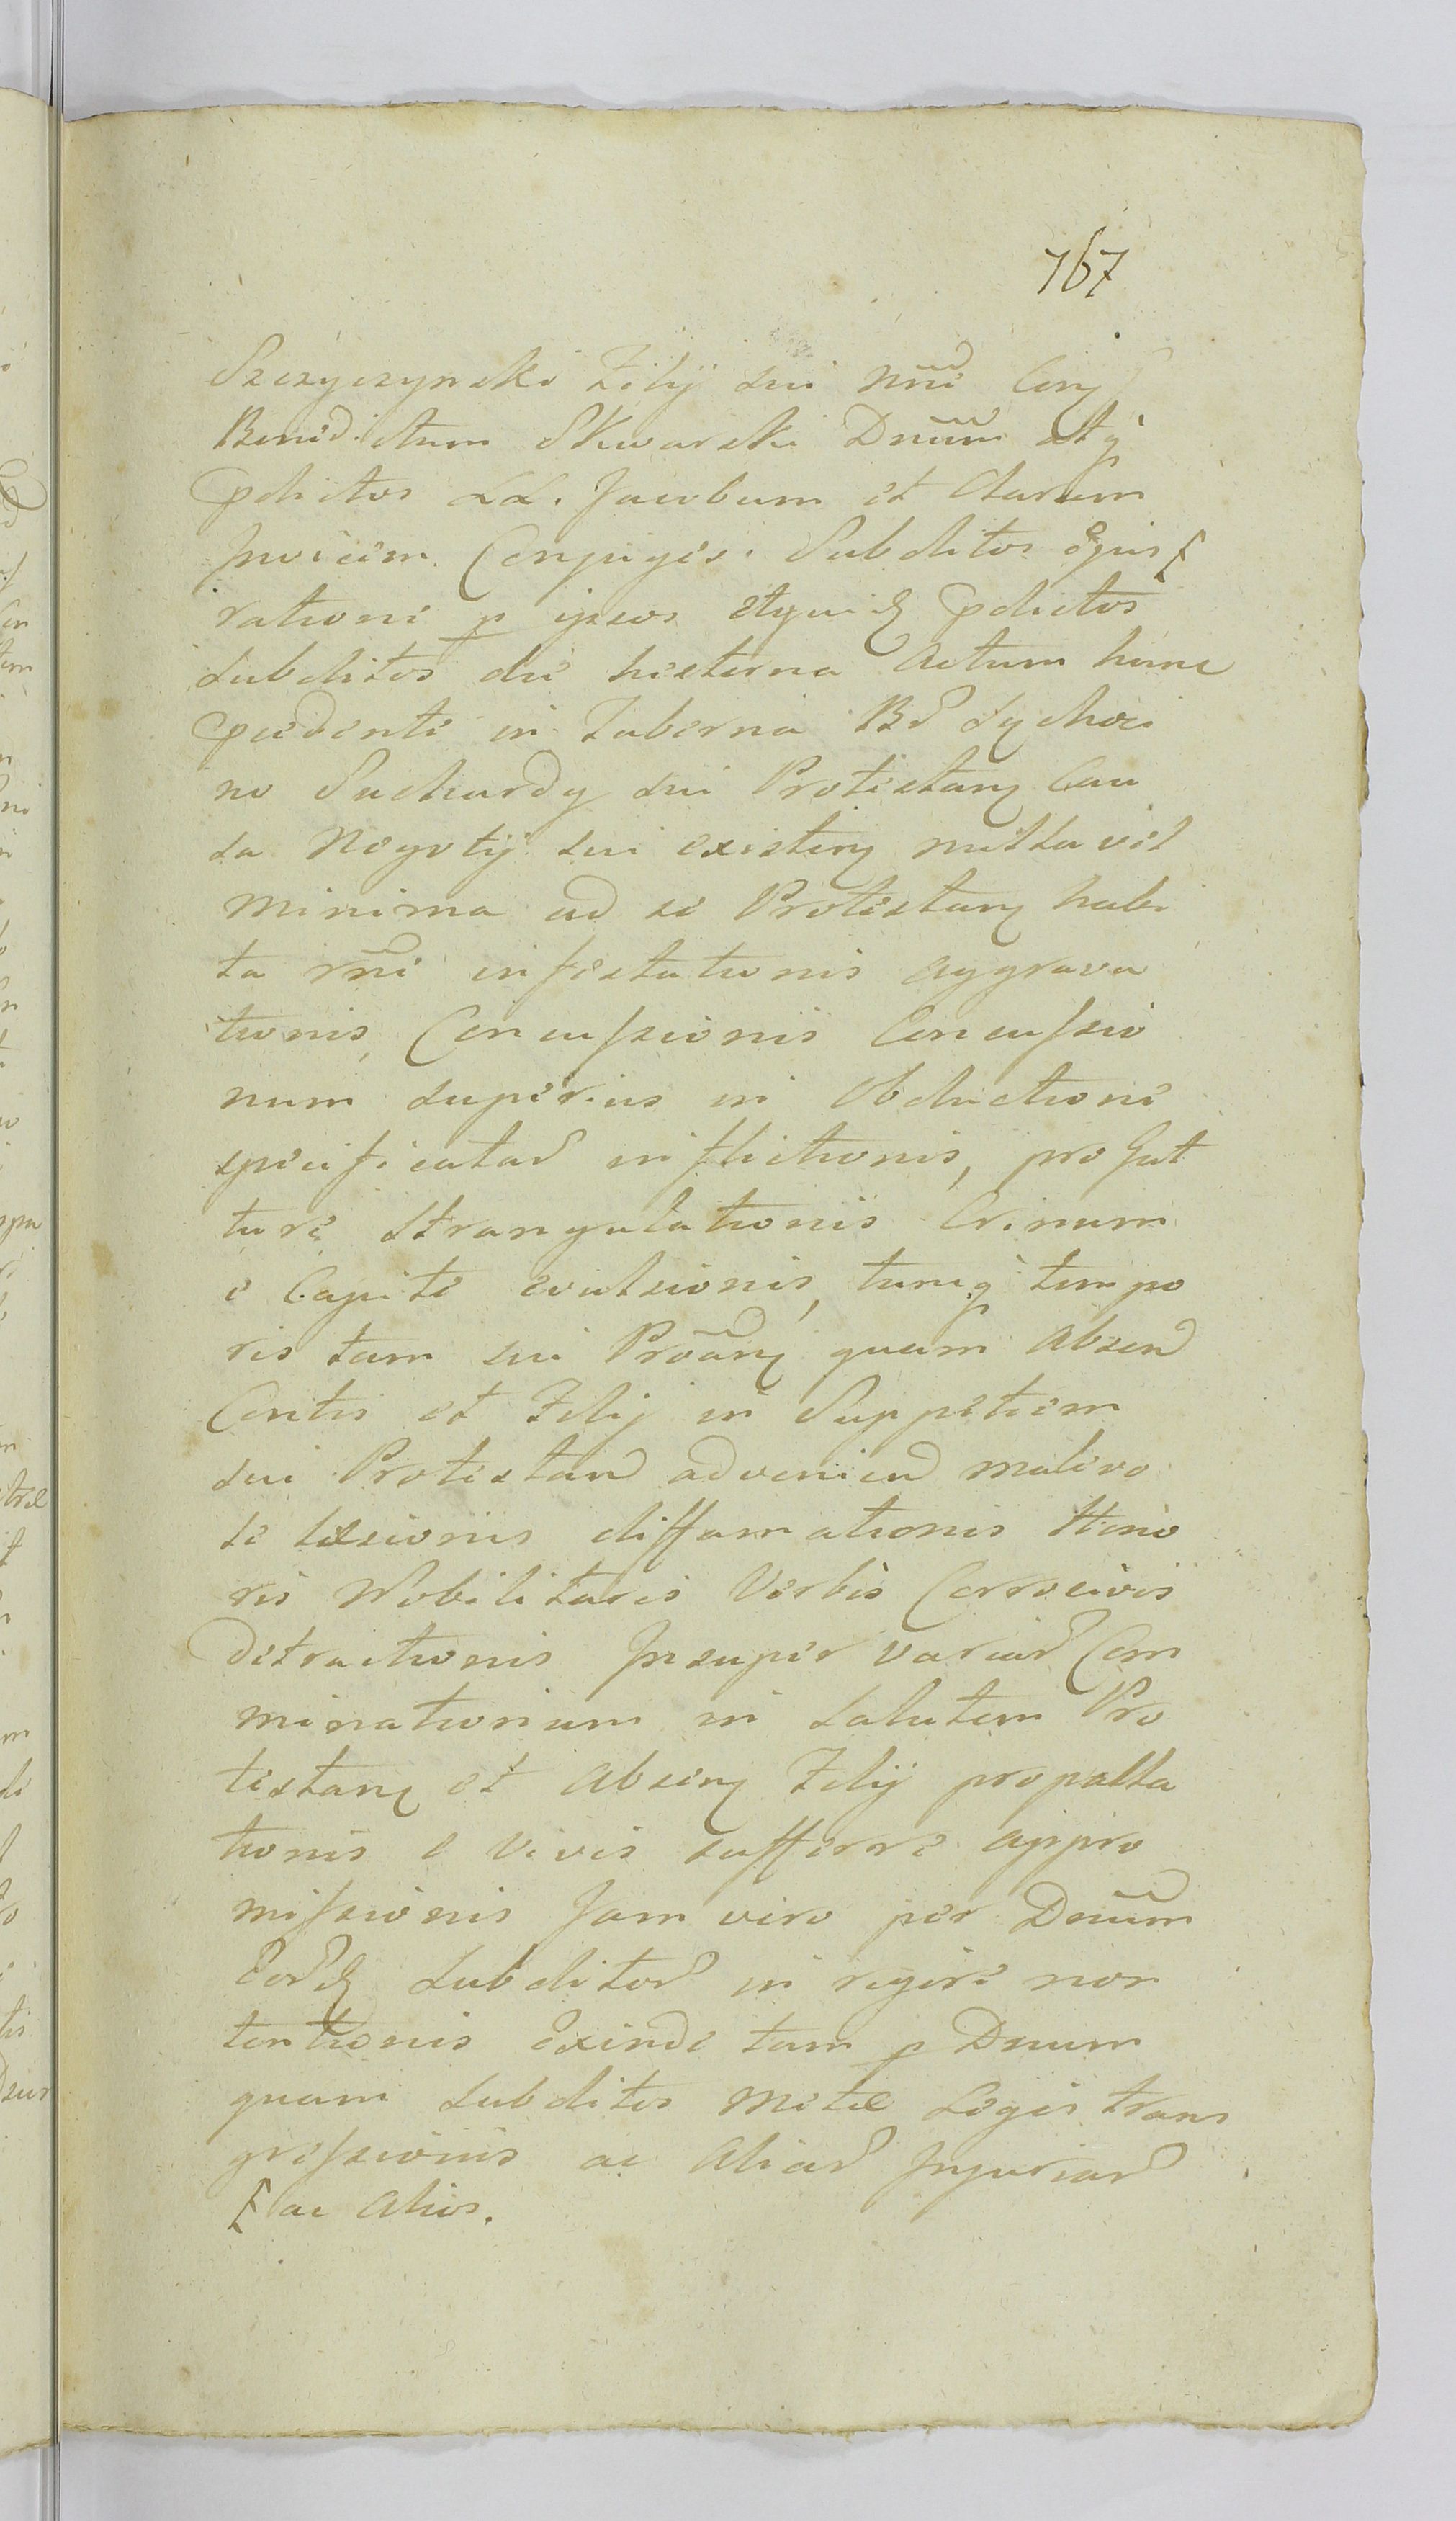 767
Szczyczynski Filij sui nõie Conq
Benedictum Skwarski Dnum atq
pdictos LL. Jacobum et Claram
Invicem Conjuges. Subditos ejus [
ratione p ipsos etquidq pdictos
Subditos die hesterna Actum hunc
pcedente in Taberna Bd Lychoci
no Suchardy sui Protestanq Cau
sa Negotij sui existenq nulla vel
minima ad se Protestanq habi
ta rñe infestationis aggrava
tionis, Concussionis Concussio
num superius in Obductione
specificatad inflictionis, pro Gut
ture strangulationis Crinum
e Capite evulsionis, tunq tempo
ris tam sui Proãnq quam absend
Contis et Filij in Suppetiem
sui Protestand adveniend malevo
le læsionis diffamationis Hono
ris Nobilitaris Verbis Corrosivis
Detractionis Insuper variad Com
minationum in Salutem Pro
testanq et absenq Filij propalla
tionis e vivis sufferre appro
missionis Jam vero per Dnum
Eordq Subditod in rigore non
tentionis Exinde tam p Dnum
quam Subditos Metæ Legis trans
gressionis ac Aliad Injuriad
[ ac Alios.